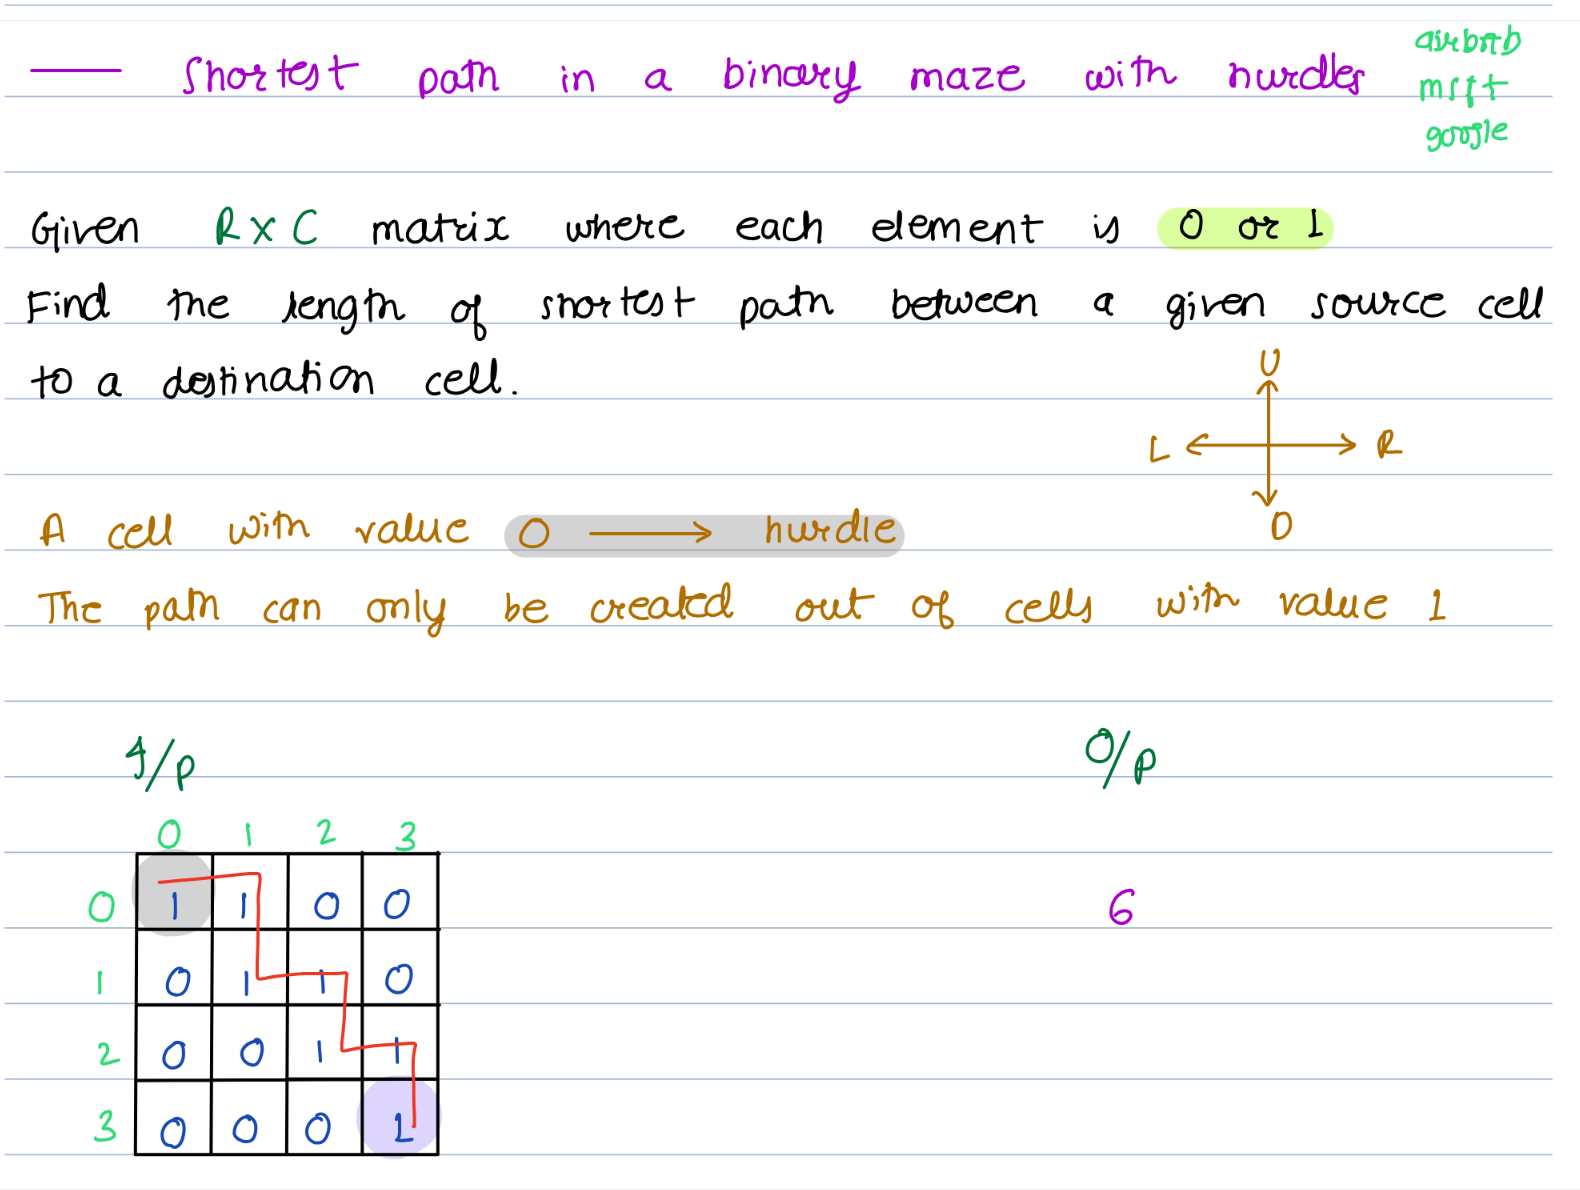 Shortest path in a binary maze with hurdles
airbnb
msft
google
Given R x C matrix where each element is 0 or 1
Find the length of shortest path between a given source cell
to a destination cell.
U
L R
D
A cell with value 0 → hurdle
The path can only be created out of cells with value 1
I/p O/p
0 1 2 3
0 1 1 0 0 6
1 0 1 1 0
2 0 0 1 1
3 0 0 0 1